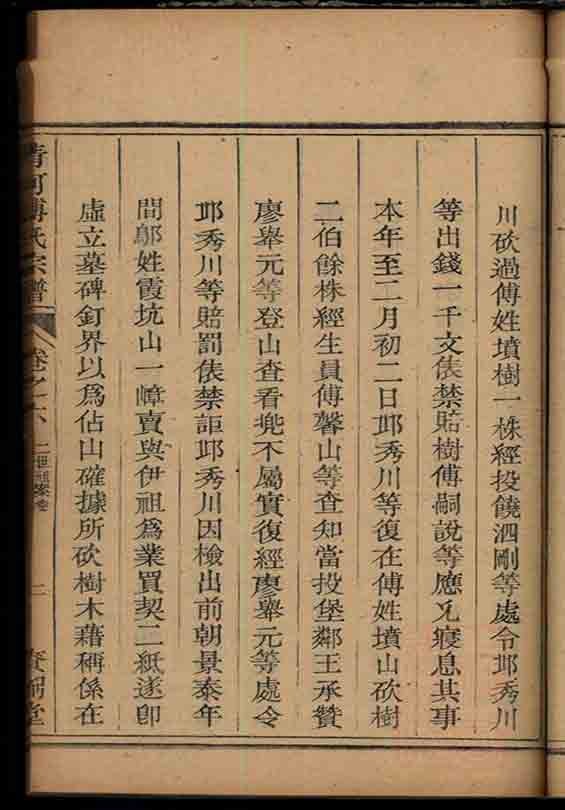 川砍過傅姓墳樹一株經投饒泗剛等處令邶秀川
等出錢一千文俵禁賠樹傅嗣說等應允寢息其事
本年至二月初二日邶秀川等復在傅姓墳山砍樹
二伯餘株經生員傅馨山等查知當投堡鄰王承贊
廖舉元等登山查看兠不屬實復經廖舉元等處令
邶秀川等賠罰俵禁詎邶秀川因檢出前朝景泰年
間鄔姓霞坑山一嶂賣與伊祖為業買契二紙遂卽
虛立墓碑釘界以為佔山確據所砍樹木藉稱係在
清河傅氏宗譜 卷之六 二世祖案 二 堂